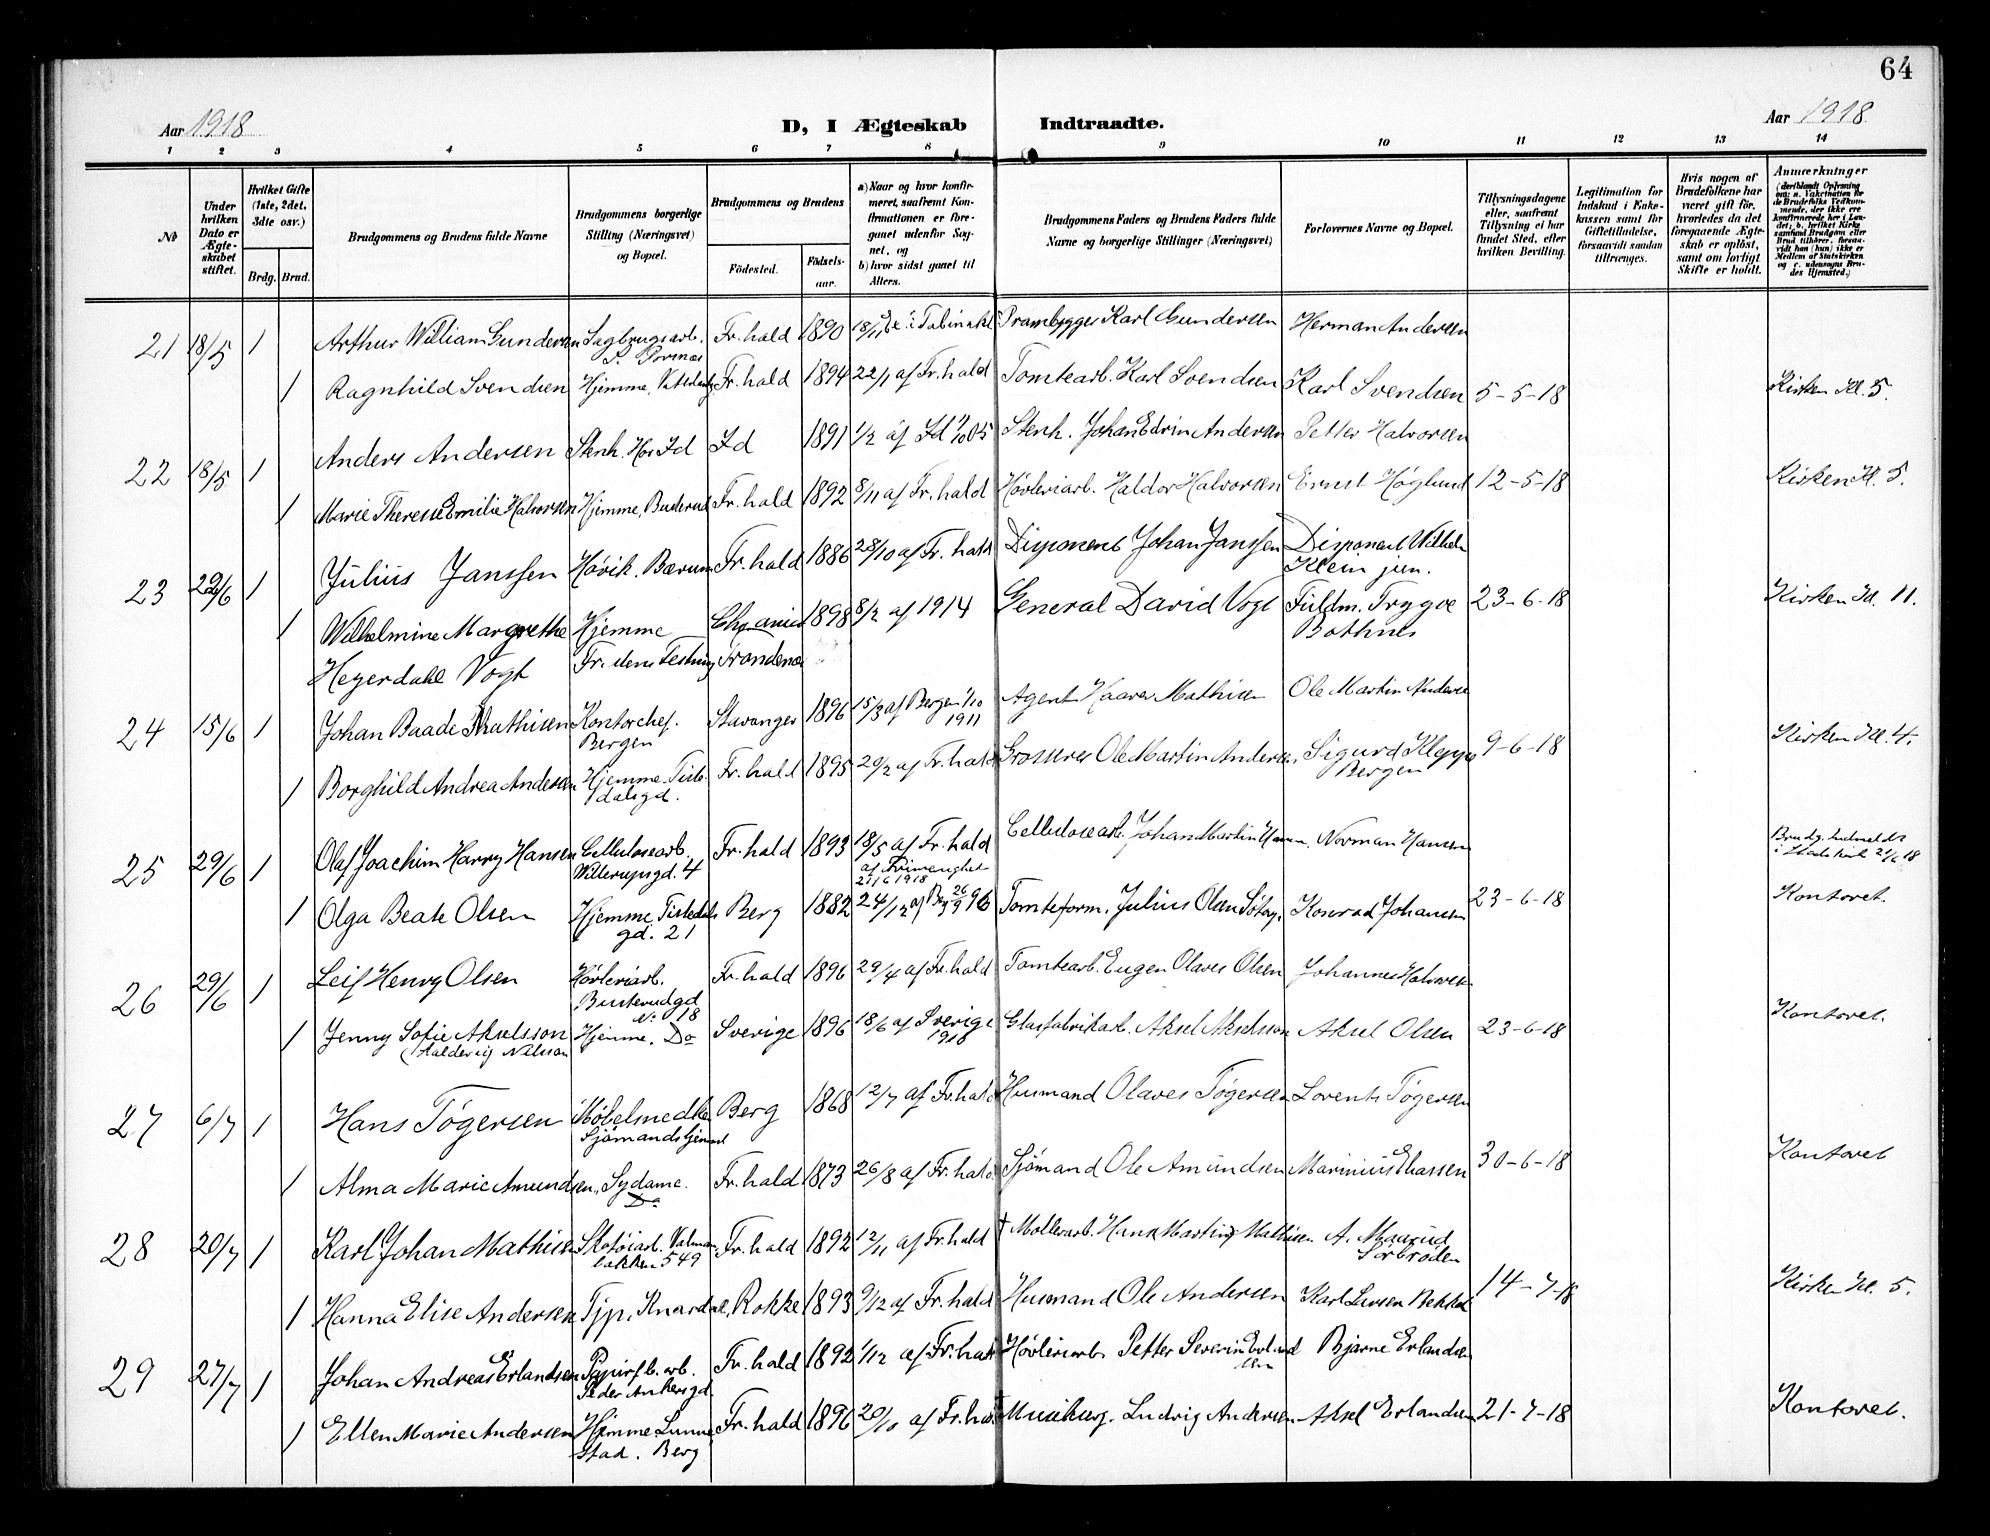 64
Aar 1918
D, I Ægteskab Indtraadte.
Aar 1918.
1 2 3 4 5 6 7 8 9 10 11 12 13 14
№
Under hvilken Dato er Ægteskabet stiftet.
Hvilket Gifte (1ste, 2det, 3die osv.)
Brdg. Brud.
Brudgommens og Brudens fulde Navne
Brudgommens borgerlige Stilling (Næringsvei) og Bopæl.
Brudgommens og Brudens
Födested.
Födsels-aar.
a) Naar og hvor konfirmeret, saafremt Konfirmationen er foregaaet udenfor Sognet, og
b) hvor sidst gaaet til Alters.
Brudgommens Faders og Brudens Faders fulde Navne og borgerlige Stillinger (Næringsvei)
Forlovernes Navne og Bopæl.
Tillysningsdagene eller, saafremt Tillysning ei har fundet Sted, efter hvilken Bevilling.
Legitimation for Indskud i Enkekassen samt for Giftetilladelse, forsaavidt saadan tiltrænges.
Hvis nogen af Brudefolkene har været gift før, hvorledes da det foregaaende Ægteskab er oplöst, samt om lovligt Skifte er holdt.
Anmærkninger
21 18/5 1 Arthur William Gundersen Sagbrugsarb. Fr.hald 1890 Prambygger Karl Gundersen Herman Andersen
1 Ragnhild Svendsen Hjemme, Fr.hald 1894 22/1 af Fr.hald Tomtearb. Karl Svendsen Karl Svendsen 5-5-18 Kirken Kl. 5.
22 18/5 1 Anders Andersen Stenh. Hov Id Id 1891 1/2 af Id Stenh. Johan Edvin Andersen Petter Halvorsen
1 Marie Therese Emilie Halvorsen Hjemme, Buserud Fr.hald 1892 8/11 af Fr.hald Høvleriarb. Haldor Halvorsen Ernst Høglund 12-5-18 Kirken Kl. 5.
23 29/6 1 Julius Janssen Høvik. Bærum Fr.hald 1886 28/10 af Fr.hald Disponent Johan Janssen Disponent Wilhelm
Klein jun.
1 Wilhelmine Margrethe Hjemme Chr.ania 1898 8/2 af 1914 General David Vogt Fuldm. Trygve 23-6-18 Kirken Kl. 11.
Bothner
Heyerdahl Vogt Fr.stens Festning Trondenes
24 15/6 1 Johan Baade Mathisen Kontorchef. Stavanger 1896 15/3 af Bergen 1/10 Agent Haaver Mathisen Ole Martin Andersen
Bergen 1911
1 Borghild Andrea Andersen Hjemme. Tiste- Fr.hald 1895 20/2 af Fr.hald Grosserer Ole Martin Andersen, Sigurd Kleppe 9-6-18 Kirken Kl. 4.
dalsgd. Bergen
25 29/6 1 Olaf Joachim Harry Hansen Cellulosearb. Fr.hald 1893 18/5 af Fr.hald Cellulosearb. Johan Martin Hansen, Norman Hansen
Willerupsgd. 4
Brudg. indmeldt i Statskirk 21/6 18
af Frimenighet
21/6 1918
1 Olga Beate Olsen Hjemme, Tistedals Berg 1882 Tomteform. Julius Olsen Konrad Johansen 23-6-18 Kontoret.
gd. 21
26 29/6 1 Leif Henry Olsen Høvleriarb. Fr.hald 1896 29/4 af Fr.hald Tomtearb. Eugen Olaves Olsen Johannes Halvorsen
Buserudgd
No 18
1 Jenny Sofie Akselsson Hjemme. Do Sverige 1896 18/6 af Sverige Glasfabrikarb. Aksel Akselsson Aksel Olsen 23-6-18 Kontoret.
1918
27 6/7 1 Hans Tøgersen Møbelsnedker Berg 1868 12/7 af Fr.hald Husmand Olaves Tøgersen Lorents Tøgersen
1 Alma Marie Amundsen, Sydame. Fr.hald 1873 26/8 af Fr.hald Sjømand Ole Amundsen Marinius Eliassen 30-6-18 Kontoret
Do
28 20/7 1 Karl Johan Mathisen Skotøiarb. Fr.hald 1892 12/11 af Fr.hald † Møllerarb. Hans Martin Mathisen A. Maarud
bakken 549 Sørbrøden
1 Hanna Elise Andersen Tjp. Knardal, Rokke 1893 9/12 af Fr.hald Husmand Ole Andersen Karl Larsen 14-7-18 Kirken Kl. 5.
29 27/7 1 Johan Andreas Erlandsen Papirfb. arb. Fr.hald 1892 1/12 af Fr.hald Høvleriarb. Petter Severin Erlandsen Bjarne Erlandsen
Peder Ankersgd
1 Ellen Marie Andersen Hjemme Fr.hald 1896 20/10 af Fr.hald † Ludvig Andersen Aksel Erlandsen 21-7-18 Kontoret.
stad. Berg